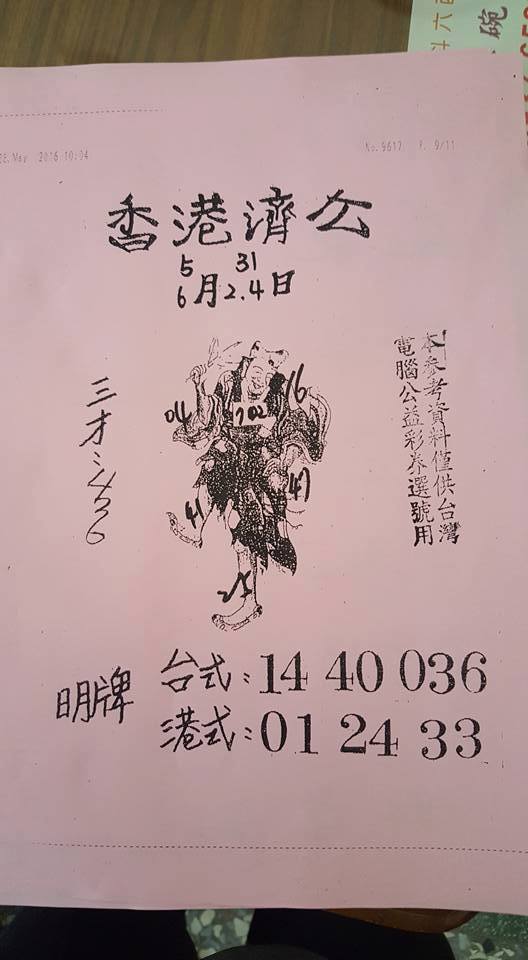 28.May 2016 10:04
No.9617 P. 9/11
香港濟公
5 31
6月2.4日
本參考資料僅供台灣
電腦公益彩券選號用
三才：436
04
16
702
41
47
25
明牌
台式：14 40 036
港式：01 24 33